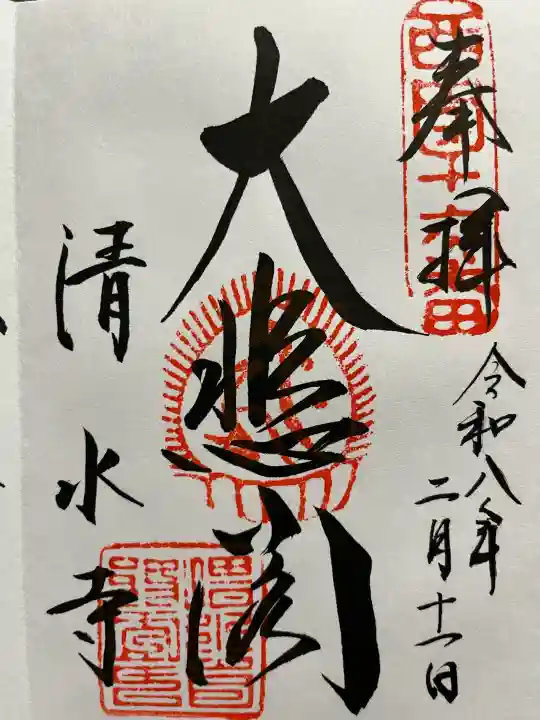 奉拝
令和八年
二月十一日
大悲閣
清水寺